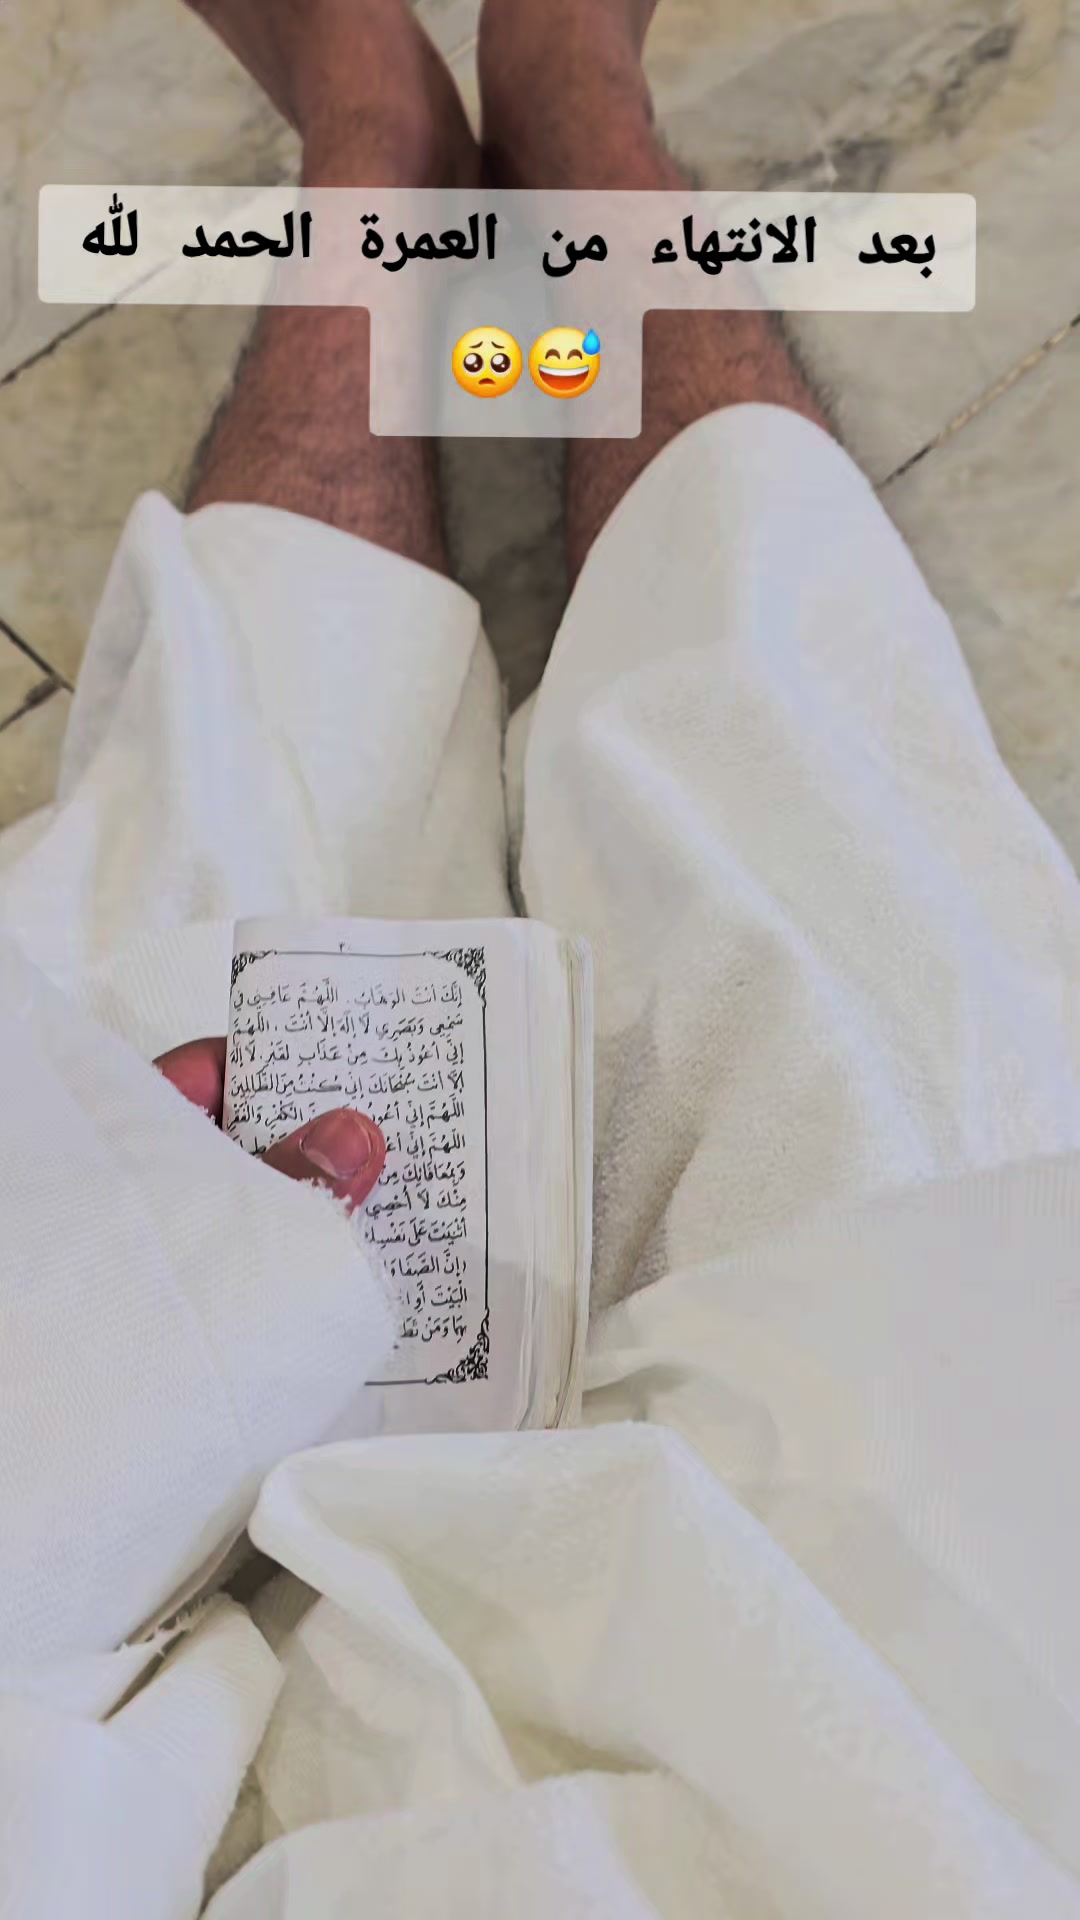 بعد الانتهاء من العمرة الحمد لله
🥺😅
٢
إِنَّكَ أَنْتَ الوَهَّابُ . اللَّهُمَّ عَافِنِي فِي
سَمْعِي وَبَصَرِي لَا إِلَهَ إِلَّا أَنْتَ ، اللَّهُمَّ
إِنِّي أَعُوذُ بِكَ مِنْ عَذَابِ لقَبْرِ، لَا إِلَهَ
إِلَّا أَنْتَ سُبْحَانَكَ إِنِّي كُنْتُ مِنَ الظَّالِمِينَ
اللَّهُمَّ إِنِّي أَعُوذُ الكُفْرِ وَالفَقْرِ
اللَّهُمَّ إِنِّي
وَبِمُعَافَاتِكَ مِنْ
مِنْكَ لَا أُحْصِي
أَثْنَيْتَ عَلَى نَفْسِكَ
إِنَّ الصَّفَا
الْبَيْتَ أَوِ
بِهِمَا وَمَنْ